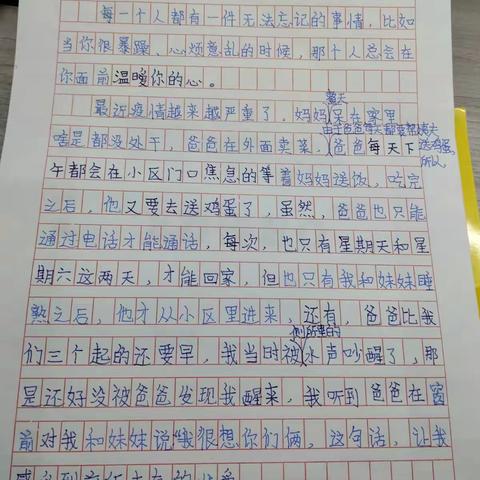 每一个人都有一件无法忘记的事情，比如
当你很暴躁、心烦意乱的时候，那个人总会在
你面前温暖你的心。
整天
最近疫情越来越严重了，妈妈呆在家里，
由于爸爸每天都要帮
啥是都没处干，爸爸在外面卖菜，爸爸每天下
送鸡蛋，
所以
午都会在小区门口焦急的等着妈妈送饭，吃完
之后，他又要去送鸡蛋了，虽然，爸爸也只能
通过电话才能通话，每次，也只有星期天和星
期六这两天，才能回家，但也只有我和妹妹睡
熟之后，他才从小区里进来，还有，爸爸比我
厕所里的
们三个起的还要早，我当时被水声吵醒了，那
是还好没被爸爸发现我醒来，我听到爸爸在窗
前对我和妹妹说“我很想你们俩，这句话，让我